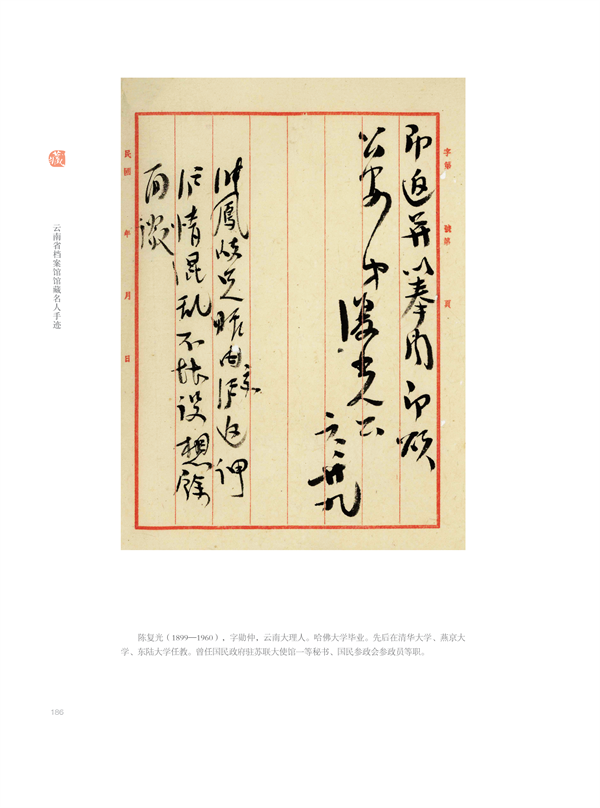 字第 號第 頁
即返并以奉闻即頌
公安 弟復光上
廿九
鳳岐兄昨由京滬返
情混乱不堪設想餘
面談
民國 年 月 日
藏
云南省档案馆馆藏名人手迹
陈复光（1899—1960），字勋仲，云南大理人。哈佛大学毕业。先后在清华大学、燕京大
学、东陆大学任教。曾任国民政府驻苏联大使馆一等秘书、国民参政会参政员等职。
186